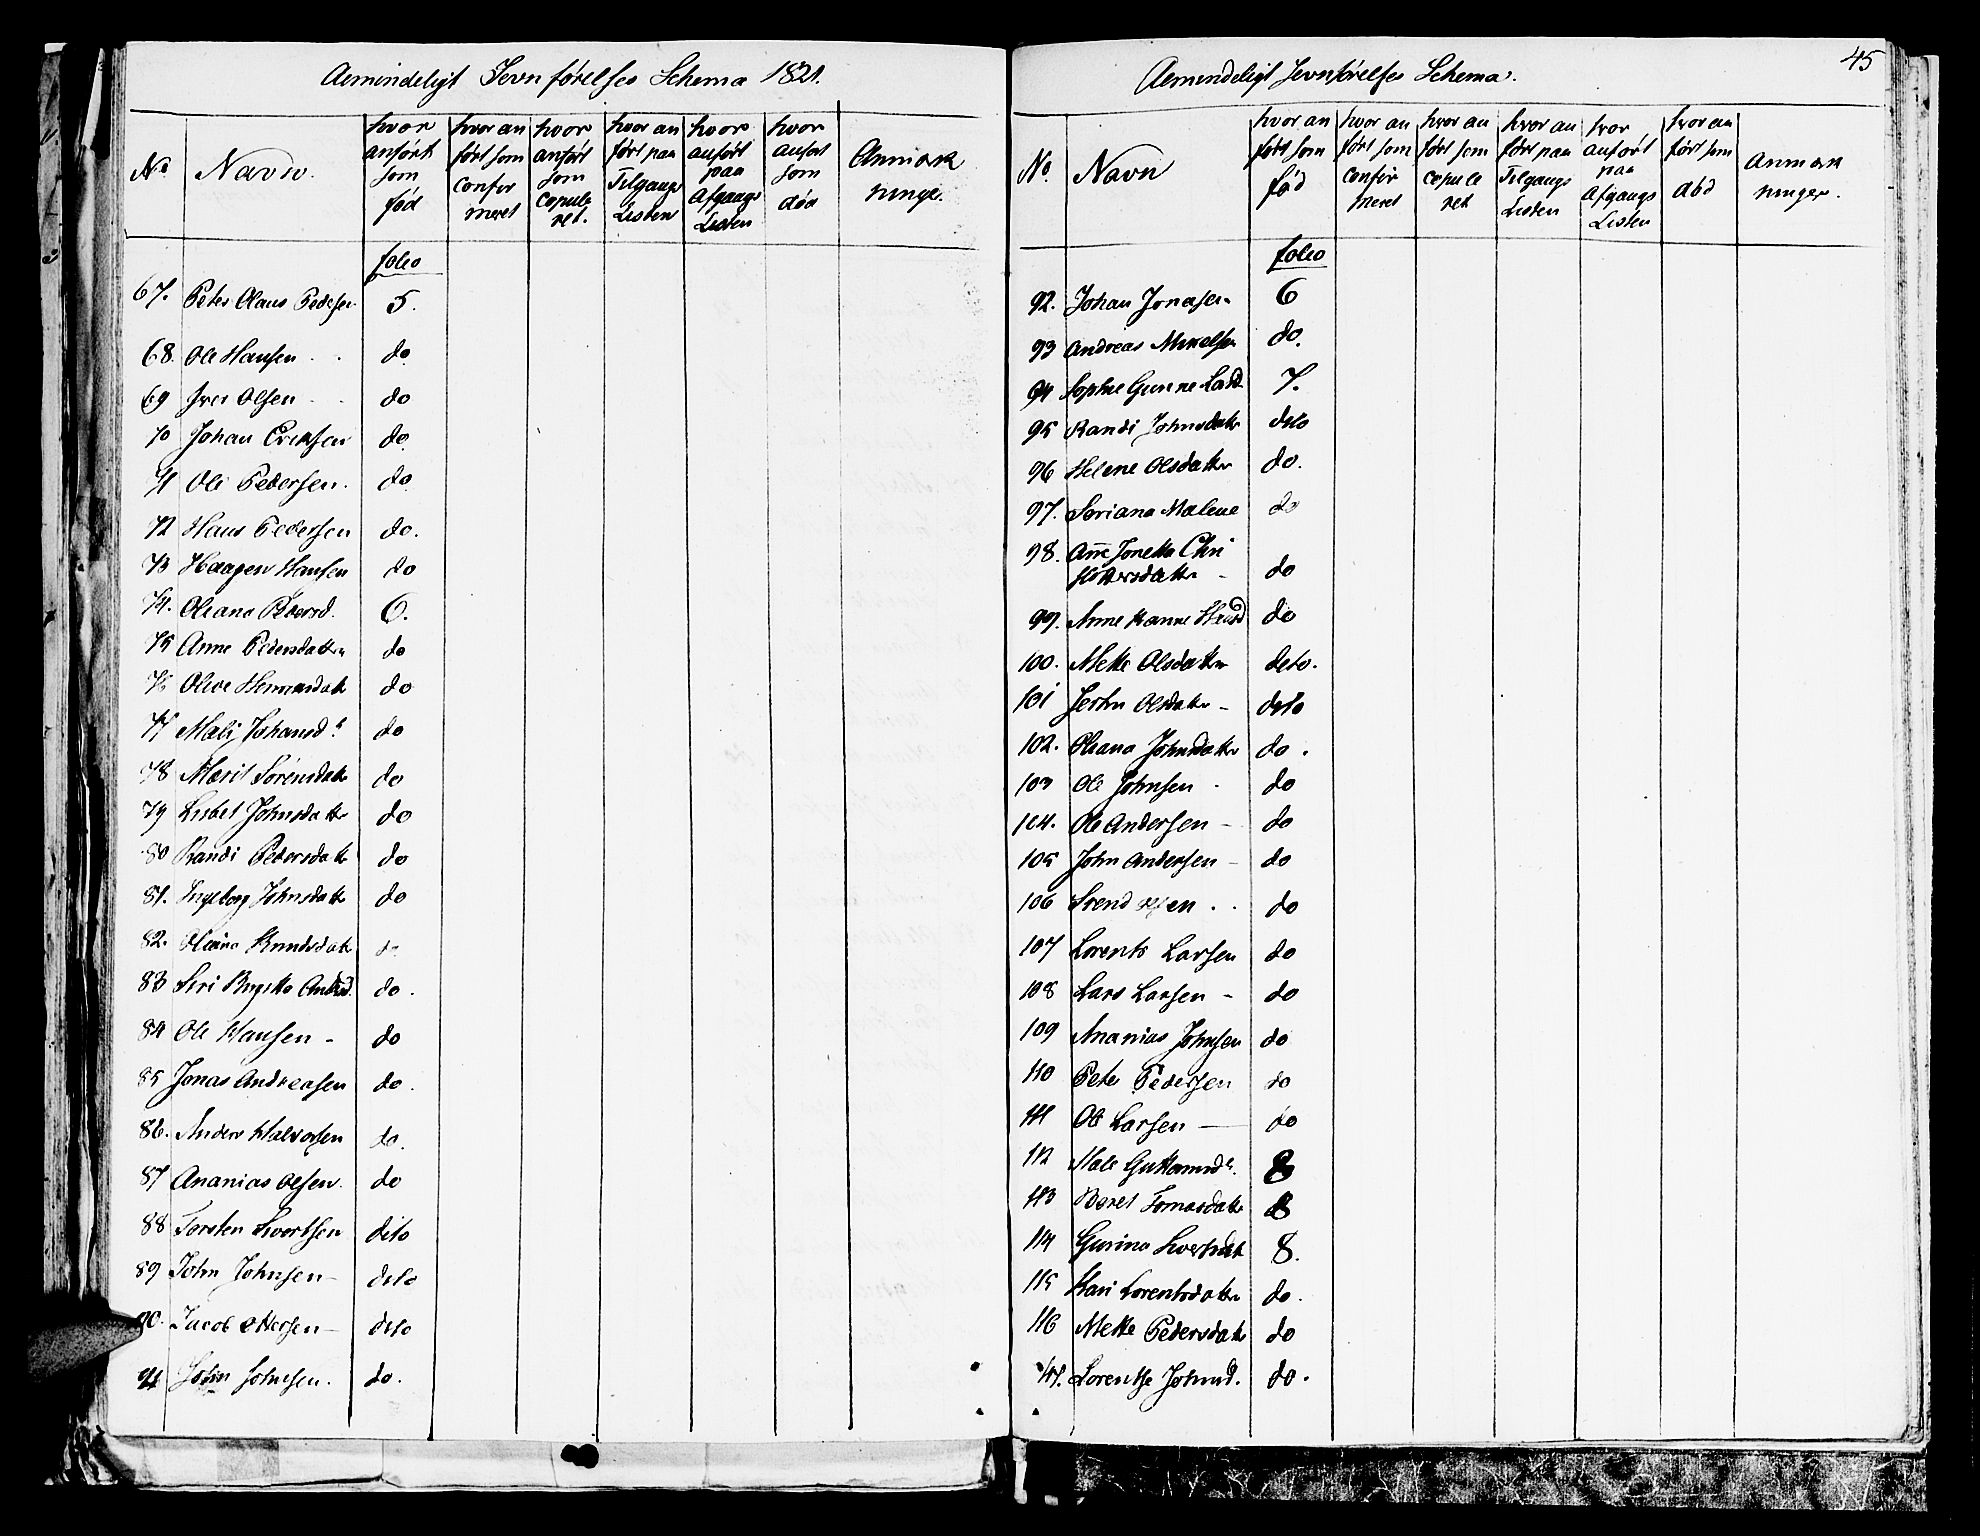 Almindeligt Jevnførelses Schema 1821.
No Navn. hvor anført som fød hvor anført som confirmeret hvor anført som copuleret. hvor anført paa Tilgangs Listen hvor anført paa Afgangs Listen hvor anført som død Anmærkninger.
folio
67. Peter Olaus Pedersen 5.
68. Ole Hansen do
69 Iver Olsen do
70 Johan Ericksen do
71 Ole Pedersen. do
72 Hans Pedersen do.
73 Haagen Hansen do
74. Oleana Pedersd. 6.
75 Anne Pedersdatter do
76 Olive do
77 Mali Johansd. do
78 Marit Sørensdatr do
79 Lisbet Johnsdatr do
80 Randi Pedersdatr do
81. Ingeborg Johnsdatr do
82. Oleana Knudsdatr do
83 Siri do.
84 Ole Hansen - do
85 Jonas Andreasen do.
86. Anders Halvorsen do.
87 Ananias Olsen. do
88 Torsten Sivertsen dito
89 John Johnsen - dito
90. Jacob Ottersen - dito
91 John Johnsen. do.
45
Almindeligt Jevnførelses Schema.
No. Navn hvor anført som fød hvor anført som confirmeret hvor anført som copuleret hvor anført paa Tilgangs Listen hvor anført paa Afgangs Listen hvor anført som død Anmærkninger.
folio
92. Johan Jonasen 6
93 Andreas Mikkelsen do.
94 Sophie Gunne Larsd. 7.
95 Randi Johnsdatr dito
96 Helene Olsdatter do.
97. Seriana Malene do
98. Anne Jonetta Chri
stophersdatter - do
99. Anne Hansd do
100. Mette Olsdatter deto.
101 Olsdatter - dito
102. Oleana Johnsdatter do.
103 Ole Johnsen - do
104. Ole Andersen - do
105 John Andersen - do
106 Svend Olsen . . do
107 Lorents Larsen do
108 Lars Larsen - do
109 Ananias Johnsen do
110 Peter Pedersen do
111 Ole Larsen - do
112 Male 8
113 Beret Tomasdatr 8
114 Gurina Sivertsdatr 8.
115 Kari Lorentsdatter do.
116 Mette Pedersdatr do
117. Lorentse Johnsd. do.